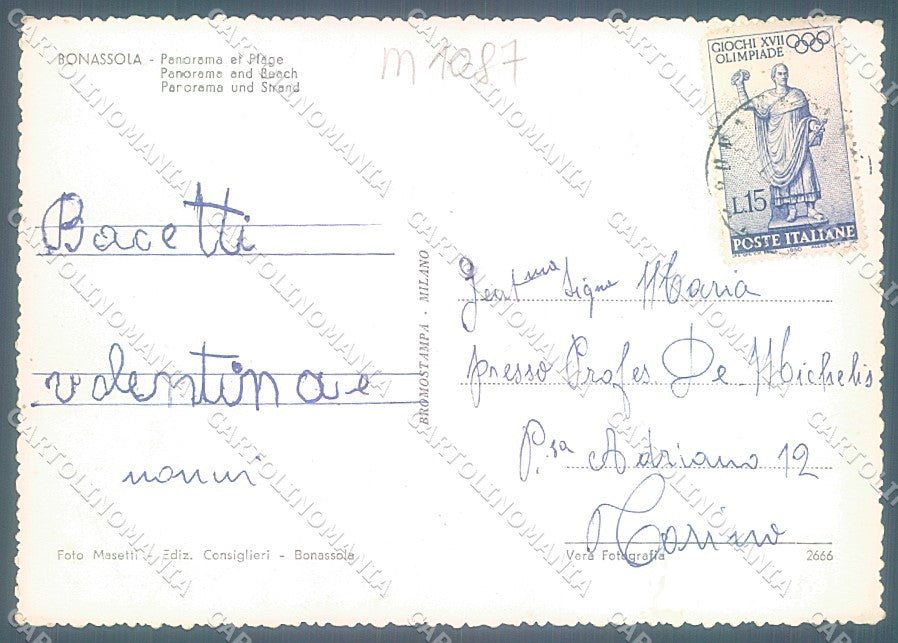 BONASSOLA - Panorama et Plage
Panorama and Beach
Panorama und Strand
m 1087
GIOCHI XVII
OLIMPIADE
L.15
POSTE ITALIANE
Bacetti
valentina e
nonni
BROMOSTAMPA - MILANO
Gent.ma Sigra Maria
presso Profes De Michelis
P.za Adriano 12
Torino
Foto Masetti - Ediz. Consiglieri - Bonassola
Vera Fotografia
2666
CARTOLINOMANIA